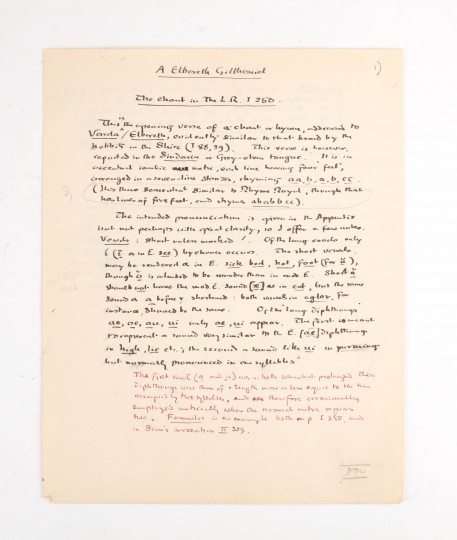 A Elbereth Gilthoniel
1)
The chant in The L.R. I 250.
This is the opening verse of a chant or hymn, addressed to
Varda / Elbereth, evidently similar to that heard by the
hobbits in the Shire (I 88, 89). This verse is however,
reported in the Sindarin or Grey-elven tongue. It is in
accented iambic metre, each line having four feet,
arranged in a seven-line stanza, rhyming a a, b, a, b, cc.
(It is thus somewhat similar to Rhyme Royal, though that
has lines of five feet, and rhyme ababbcc).
The intended pronunciation is given in the Appendix
but not perhaps with great clarity, so I offer a few notes.
Vowels: short unless marked ´. Of the long vowels only
í (ī as in E. see) by chance occurs. The short vowels
may be rendered as in E. sick bed, hot, foot (for ŭ),
though ŏ is intended to be rounder than in mod E. Short ă
should not have the mod E. sound [æ] as in cat, but the same
sound as a before r shortened: both vowels in aglar, for
instance, should be the same. Of the 'long diphthongs'
ae, oe, au, ui only ae, ui appear. The first is meant
to represent a sound very similar to the E. [ae] diphthong
in high, lie etc.; the second a sound like ui in pursuing
but normally pronounced in one syllable.
The first vowel (a and u) was in both somewhat prolonged. These
diphthongs were thus of a length more or less equal to the time
occupied by two syllables, and are therefore occasionally
employed metrically when the normal metre requires
two. Fanuilos is an example both on p. I 250. and
in Sam's invocation II 339.